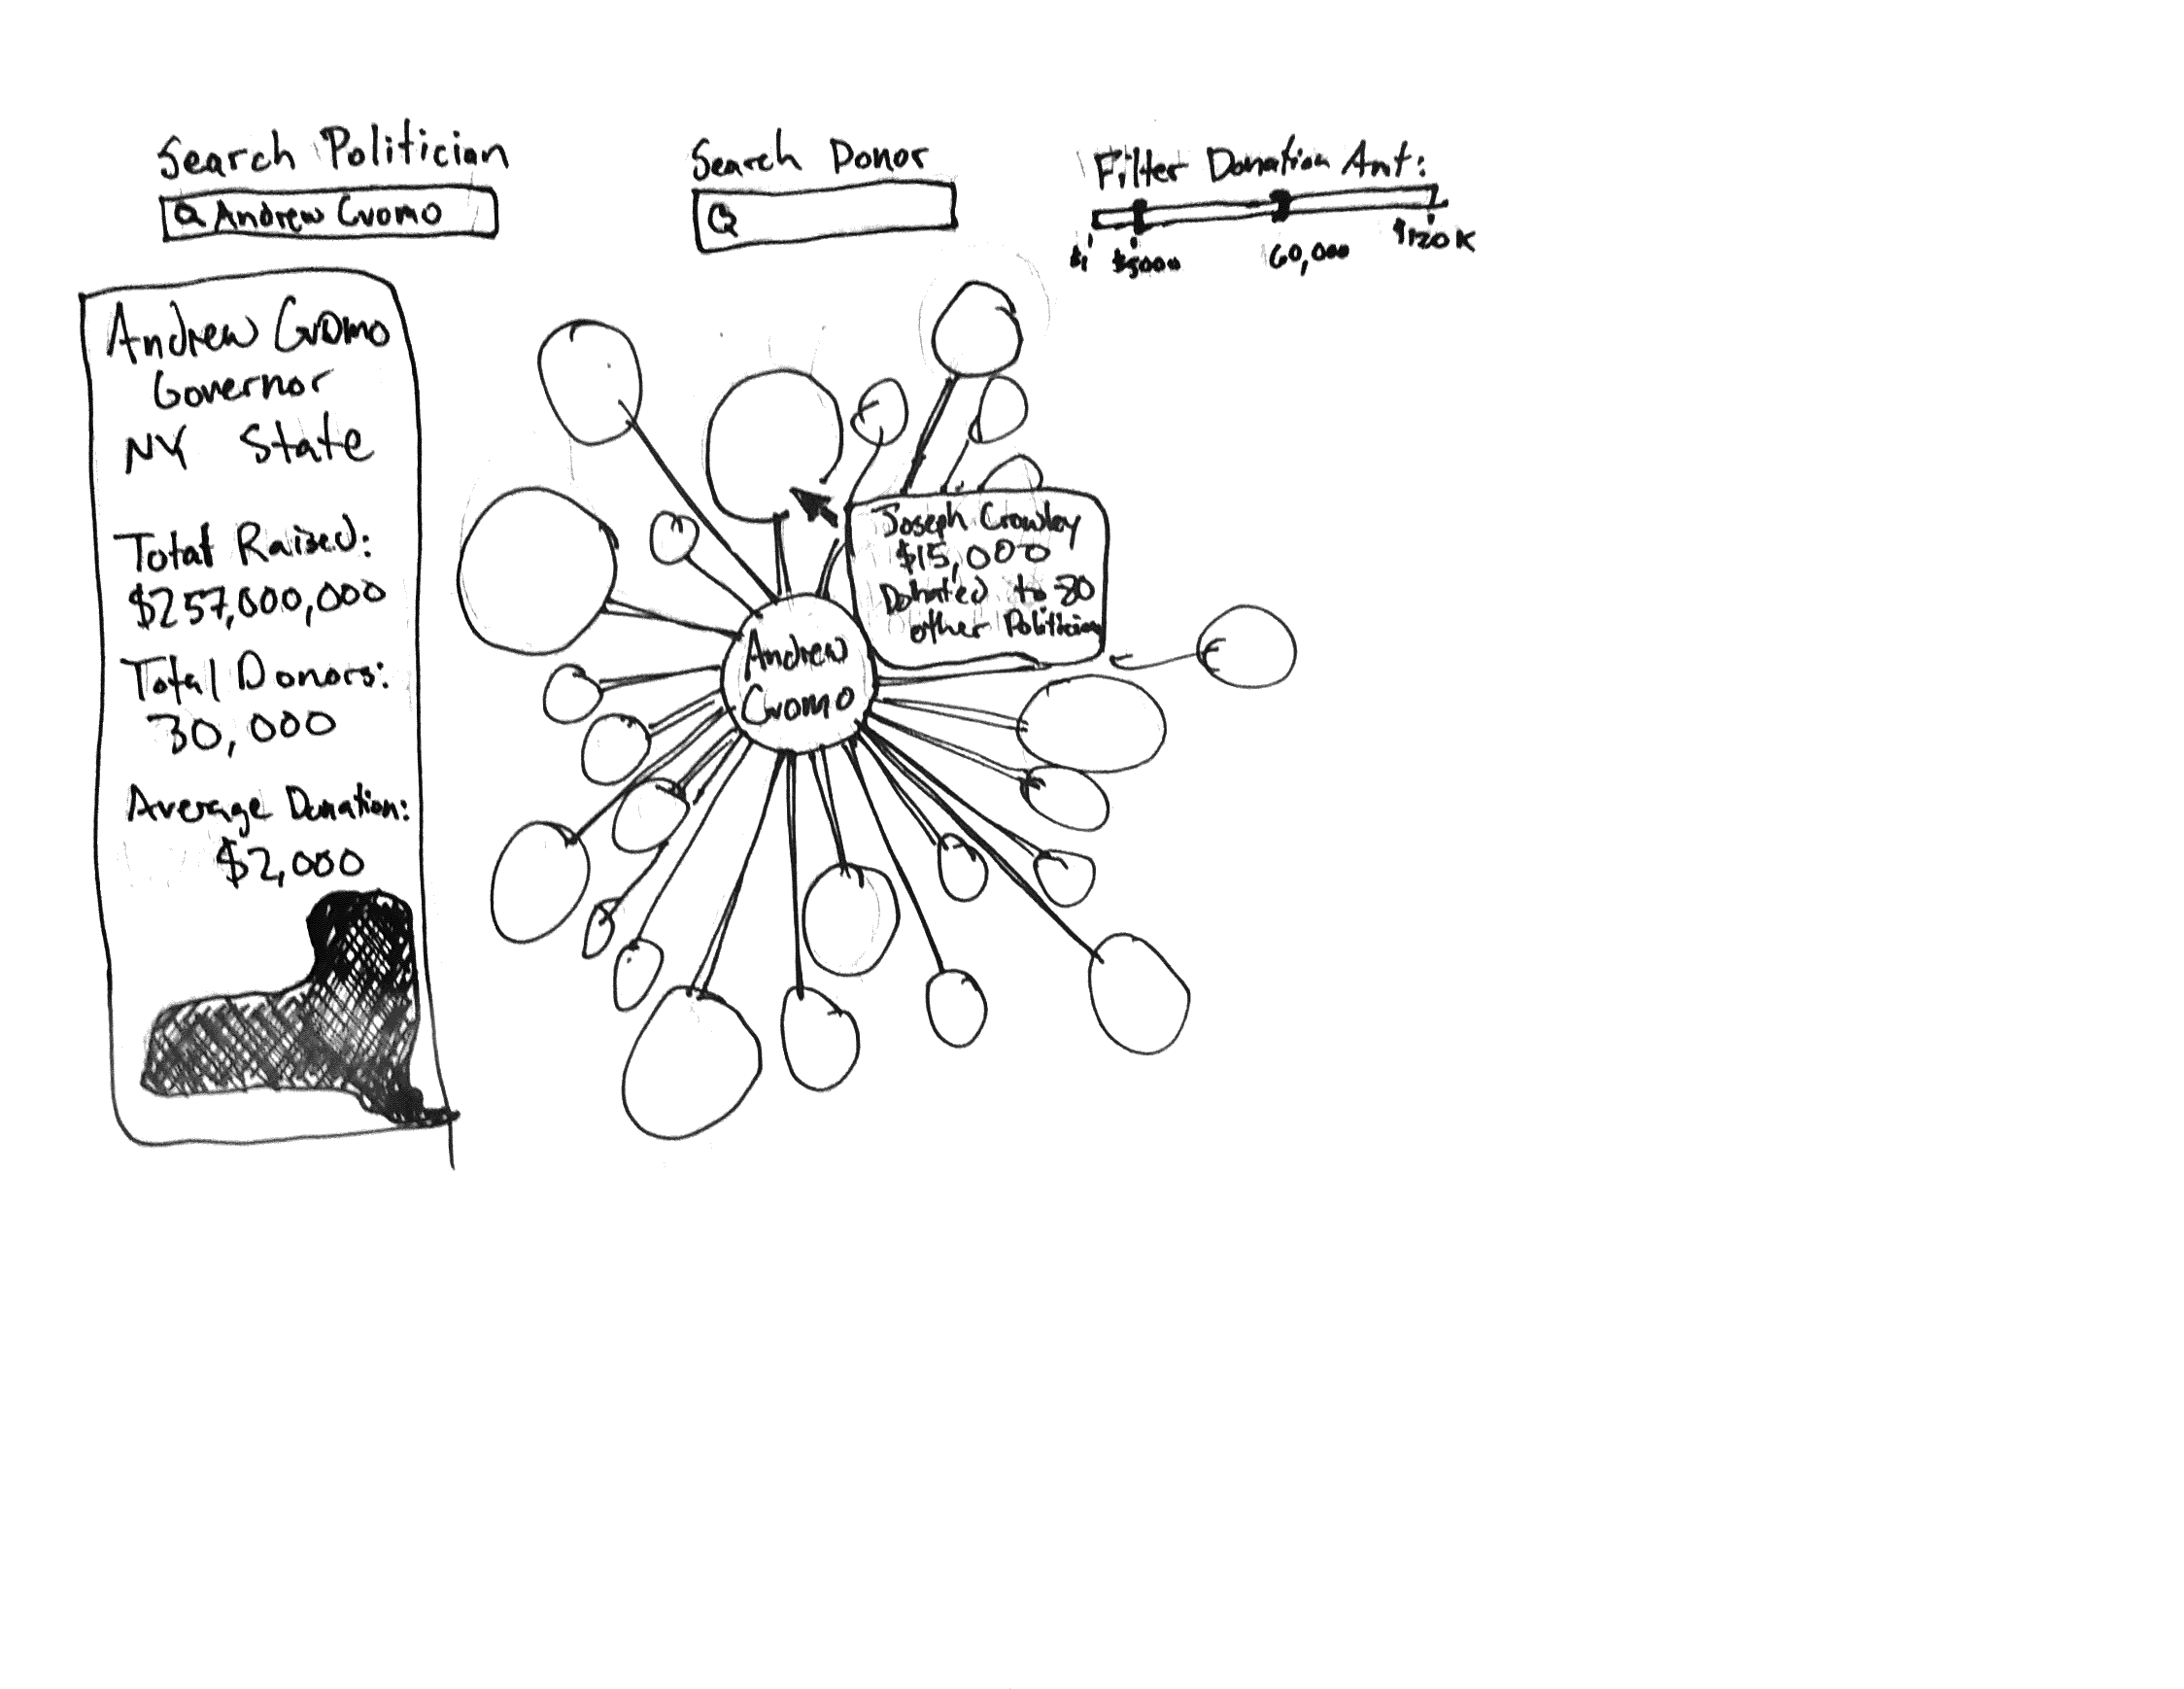 Search Politician
Andrew Cuomo
Search Donor
Filter Donation Amt:
$1 $5000 60,000 $120K
Andrew Cuomo
Governor
NY State
Total Raised:
$257,000,000
Total Donors:
30,000
Average Donation:
$2,000
Joseph Crowley
$15,000
Donated to 30
other Politicians
Andrew
Cuomo